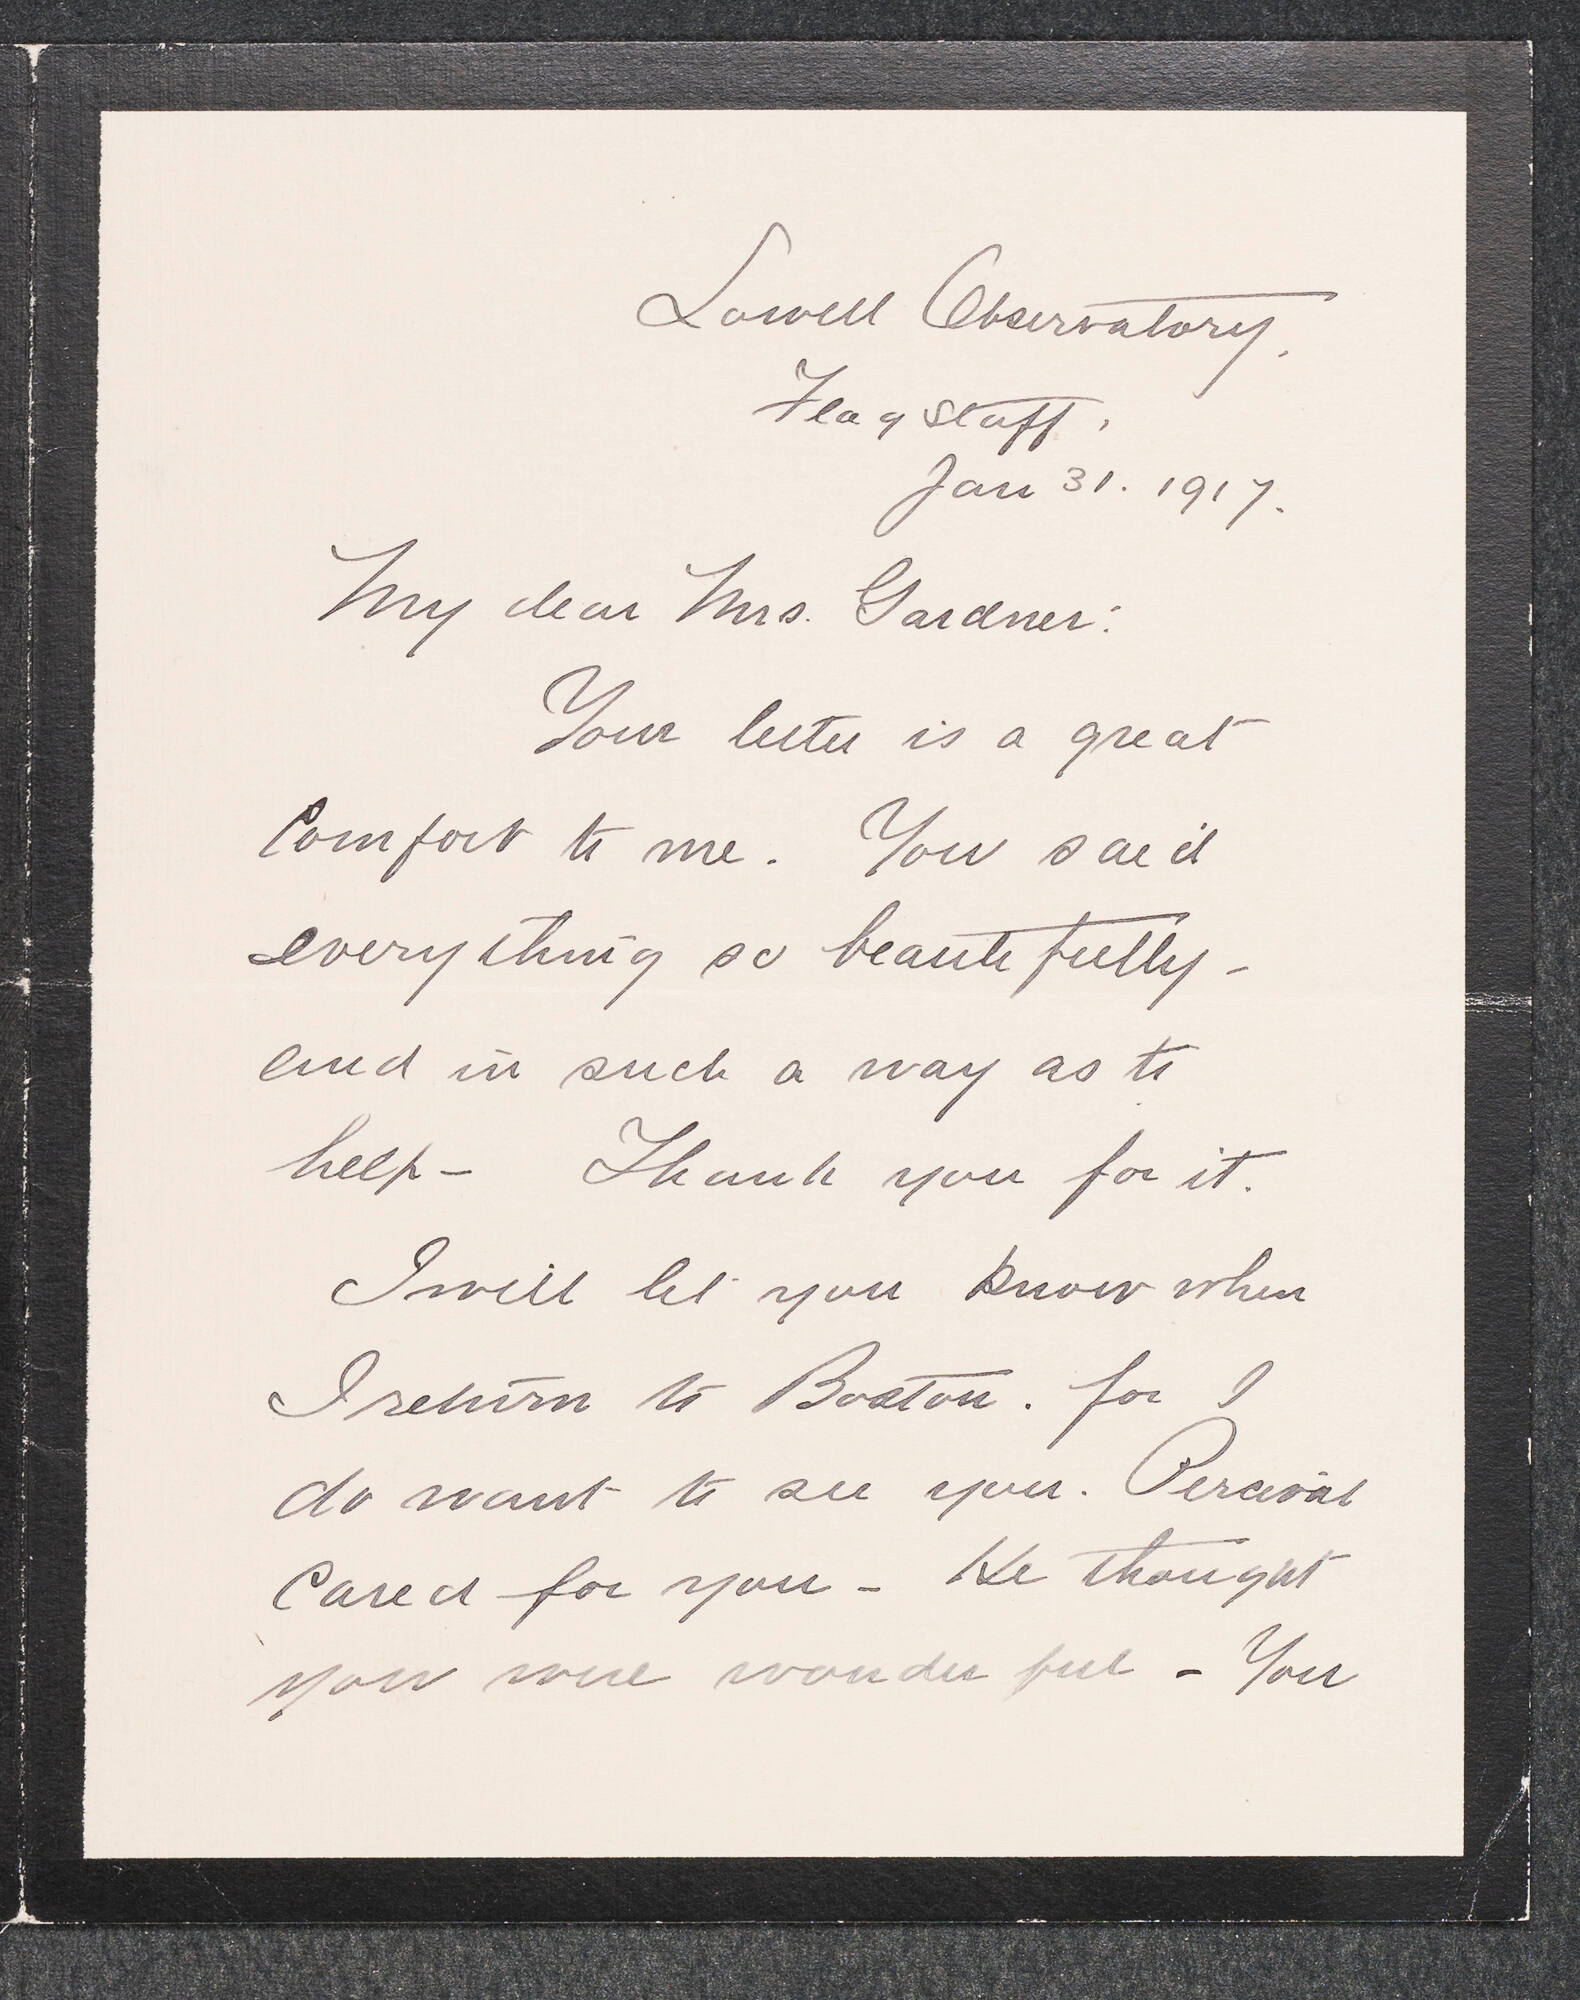 Lowell Observatory,
Flagstaff,
Jan 31. 1917.
My dear Mrs. Gardner:
Your letter is a great
comfort to me. You said
everything so beautifully -
and in such a way as to
help - Thank you for it.
I will let you know when
I return to Boston. for I
do want to see you. Percival
cared for you - He thought
you were wonderful - You